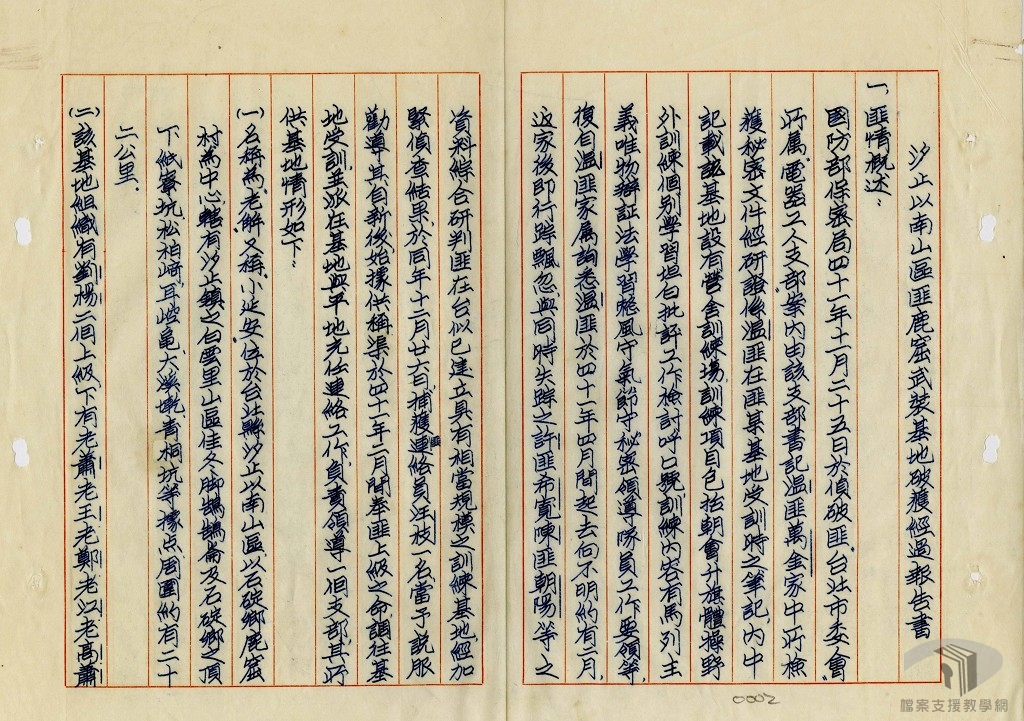 汐止以南山區匪鹿窟武裝基地破獲經過報告書
一、匪情概述:
國防部保密局四十一年十一月二十五日於偵破匪「台北市委會」
所屬「電器工人支部」案內由該支部書記溫匪萬金家中所檢
獲秘密文件經研證係溫匪在匪某基地受訓時之筆記,內中
記載該基地設有營舍訓練場,訓練項目包括朝會升旗體操野
外訓練個別學習坦白批評工作檢討呼口號,訓練內容有馬列主
義唯物辯証法學習態風守氣節守秘密領導隊員工作要領等,
複自溫匪家屬詢悉溫匪於四十一年四月間起去向不明約有二月,
返家後即行踪飄忽與同時失踪之許匪希寬陳匪朝陽等之
資料綜合研判匪在台似已建立具有相當規模之訓練基地,經加
緊偵查結果於同年十二月廿六日捕獲匪連絡員汪枝一名當予說服
勸導其自新後,始據供稱渠於四十一年二月間奉匪上級之命調往基
地受訓,並派在基地與平地充任連絡工作,負責領導一個支部,其所
供基地情形如下:
(一)名稱為「老解」又稱「小延安」位於台北縣汐止以南山區,以石碇鄉鹿窟
村為中心,轄有汐止鎮之白雲里山區佳冬脚鵠鵠崙及石碇鄉之頂
下紙寮坑、松柏崎、耳空龜、大溪墘、青桐坑等據点,周圍約有二十
二公里、
(二)該基地組織有劉楊二個上級,下有老蕭老王老鄭老江老高蕭
0002
檔案支援教學網